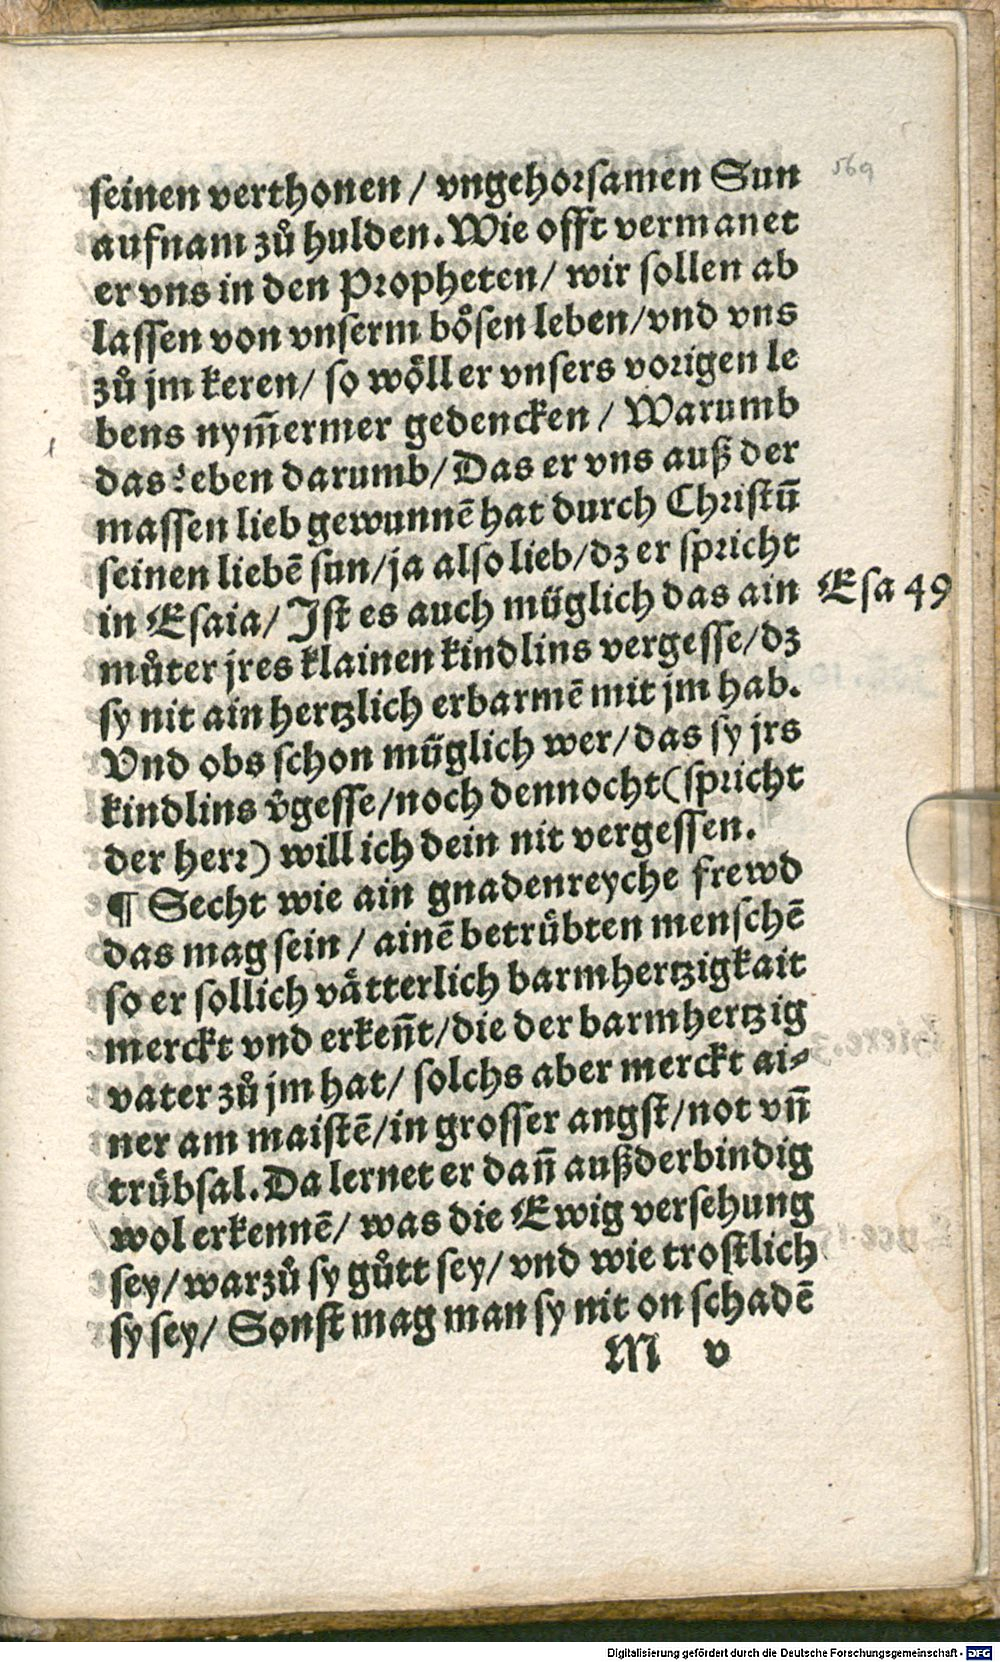 569
seinen verthonen / vngehorsamen Sun
aufnam zů hulden. Wie offt vermanet
er vns in den Propheten / wir sollen ab
lassen von vnserm boͤsen leben / vnd vns
zů jm keren / so woͤll er vnsers vorigen le
bens nym̄ermer gedencken / Warumb
das: eben darumb / Das er vns auß der
massen lieb gewunnē hat durch Christū
seinen liebē sun / ja also lieb / dz er spricht
in Esaia / Ist es auch müglich das ain Esa 49
můter jres klainen kindlins vergesse / dz
sy nit ain hertzlich erbarmē mit jm hab.
Vnd obs schon müglich wer / das sy jrs
kindlins v̄gesse / noch dennocht (spricht
der herr) will ich dein nit vergessen.
¶ Secht wie ain gnadenreyche frewd
das mag sein / ainē betruͤbten menschē
so er sollich vaͤtterlich barmhertzigkait
merckt vnd erken̄t / die der barmhertzig
vater zů jm hat / solchs aber merckt ai⸗
ner am maistē / in grosser angst / not vn̄
truͤbsal. Da lernet er dan̄ außderbindig
wol erkennē / was die Ewig versehung
sey / warzů sy gůtt sey / vnd wie trostlich
sy sey / Sonst mag man sy nit on schadē
M v
Digitalisierung gefördert durch die Deutsche Forschungsgemeinschaft - DFG